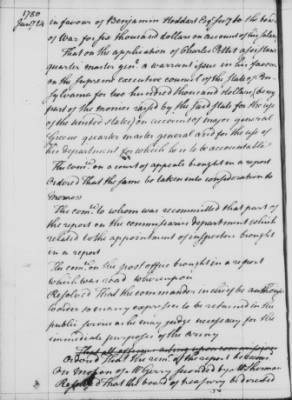 1780
Jany 24
in favour of Benjamin Stoddart Esqr Secy to the board
of War for six thousand dollars on account of his salary
That on the application of Charles Pettit assistant
quarter master genl a warrant issue in his favour
on the supreme executive council of the state of Penn
sylvania for two hundred thousand dollars (being
part of the monies raised by the said state for the use
of the United States) on account of major general
Greene quarter master general and for the use of
his department for which he is to be accountable
The comee on a court of appeals brought in a report
Ordered That the same be taken into consideration to
morrow
The comee to whom was recommitted that part of
the report on the commissaries department which
related to the appointment of inspectors brought
in a report
The comee on the post office brought in a report
which was read whereupon
Resolved That the commander in chief be authorised
to order so many expresses to be retained in the
public service as he may judge necessary for the
immediate purposes of the army
That all officers acting upon commission
Ordered That the remr of the report be
On motion of Mr Gerry seconded by Mr Sherman
Resolved That the board of treasury be directed